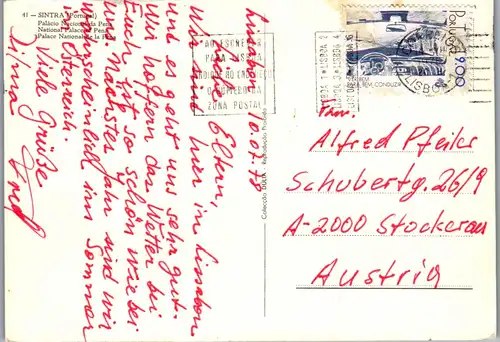 41 - SINTRA (Portugal)
Palácio Nacional da Pena
National Palace of Pena
Palace Nationale de la Pena
10.07.78
Liebe Eltern,
wir sind hier in Lissabon
und es geht uns sehr gut.
Wir hoffen das Wetter bei
Euch ist so schön wie bei
uns. Nächstes Jahr sind wir
wahrscheinlich im Sommer
in Österreich.
Viele Grüße
Colecção DÚLIA - Reprodução Proibida
AO ESCREVER
PARA LISBOA
INDIQUE NO ENDEREÇO
O NÚMERO DA
ZONA POSTAL
LISBOA 2
PORTUGAL
9.00
CONDUZIR
LISBOA
Fam.
Alfred Pfeiler
Schubertg. 26/9
A-2000 Stockerau
Austria